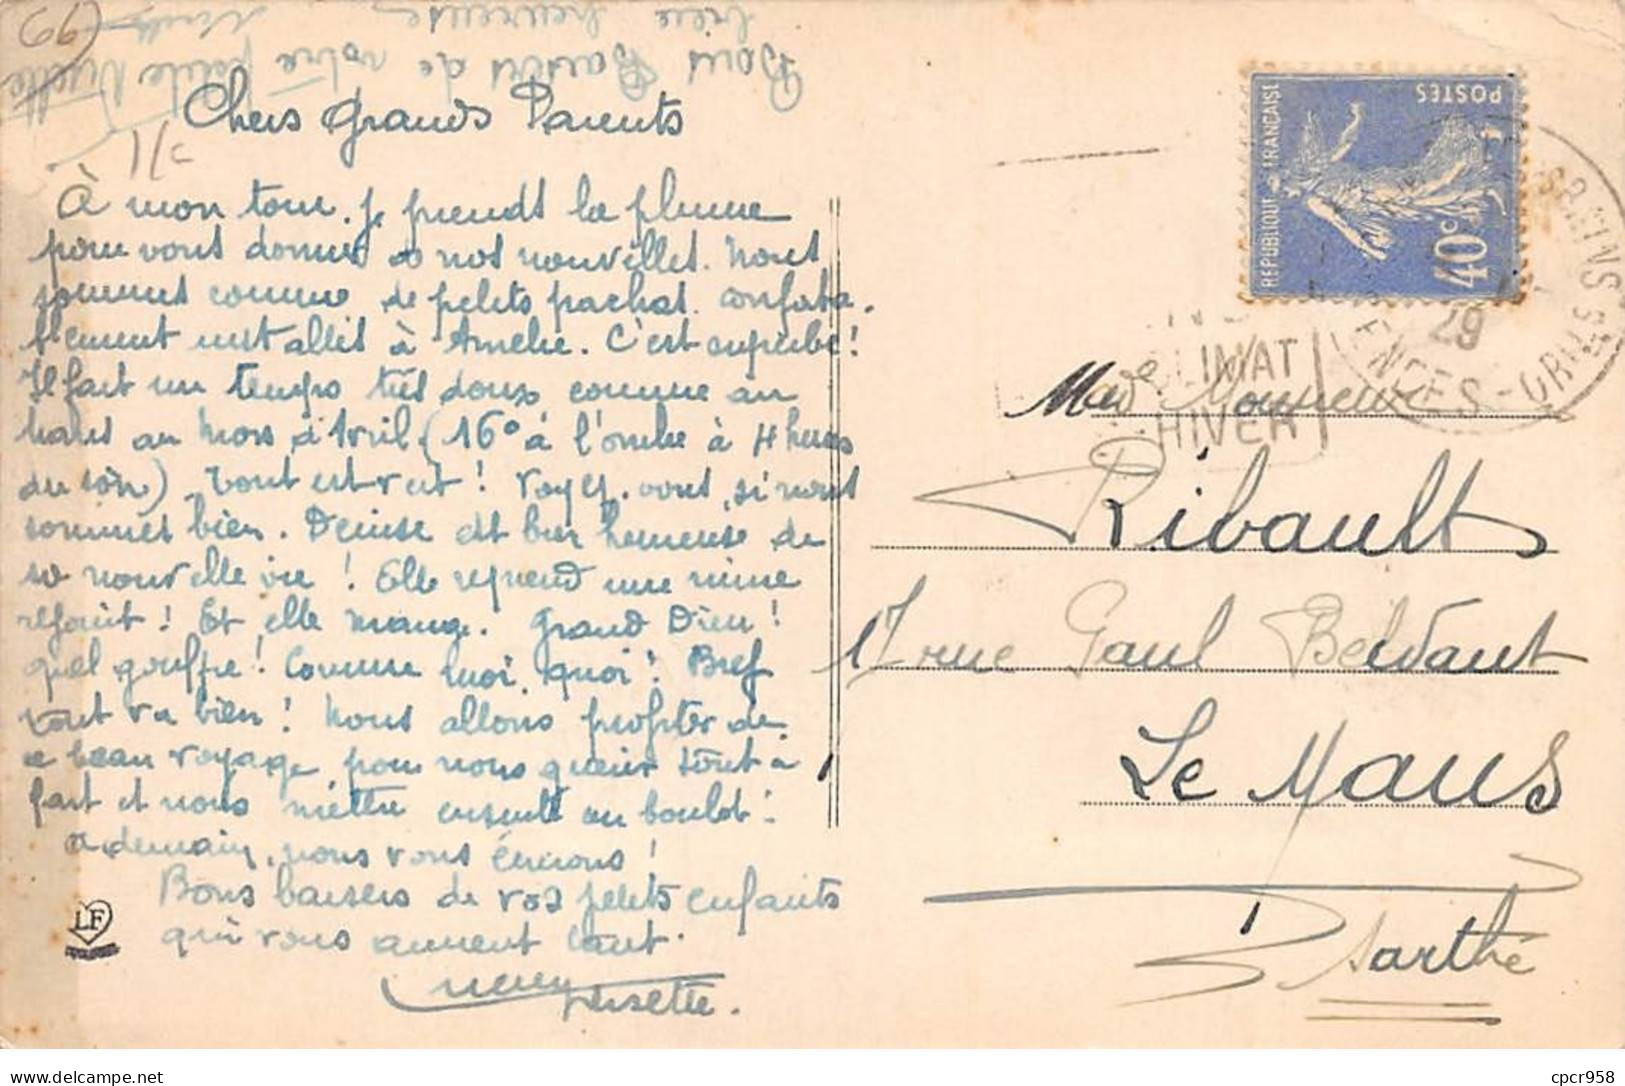 Bons Baisers de votre petite Nisette
bien heureuse
(66)
Chers Grands Parents
À mon tour, je prends la plume
pour vous donner de nos nouvelles. Nous
sommes comme de petits pachas. conforta-
blement installés à Amélie. C'est superbe!
Il fait un temps très doux comme au
Mans au Mois d'Avril (16° à l'ombre à 4 heures
du soir) Tout est vert! Voyez-vous, si nous
sommes bien. Denise est bien heureuse de
sa nouvelle vie! Elle reprend une mine
réjouit! Et elle mange. Grand Dieu!
quel gouffre! Comme moi, quoi! Bref
tout va bien! Nous allons profiter de
ce beau voyage, pour nous guérir tout à
fait et nous mettre ensuite au boulot!
A demain, nous vous écrirons!
Bons baisers de vos petits enfants
qui vous aiment tant.
Nisette.
LF
REPUBLIQUE FRANÇAISE
POSTES
40c
29
CLIMAT
HIVER
-ORIES
Mr et Mme Monsieur
Ribault
17 rue Paul Beldant
Le Mans
Sarthe
cpcr958